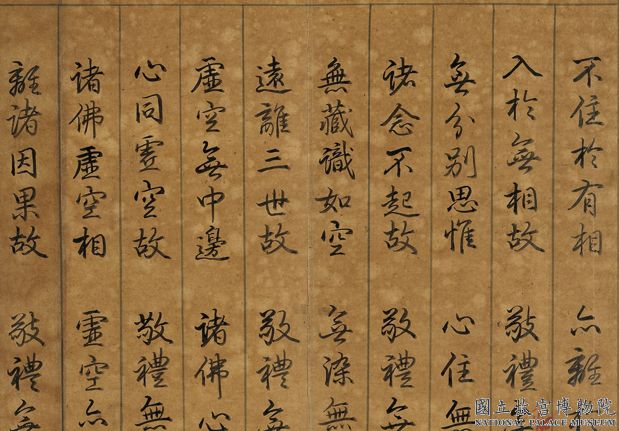 不住於有相 亦離
入於無相故 敬禮無
無分別思惟 心住無
諸念不起故 敬禮無
無藏識如空 無染無
遠離三世故 敬禮無
虛空無中邊 諸佛心
心同虛空故 敬禮無
諸佛虛空相 虛空亦
離諸因果故 敬禮無
國立故宮博物院
NATIONAL PALACE MUSEUM